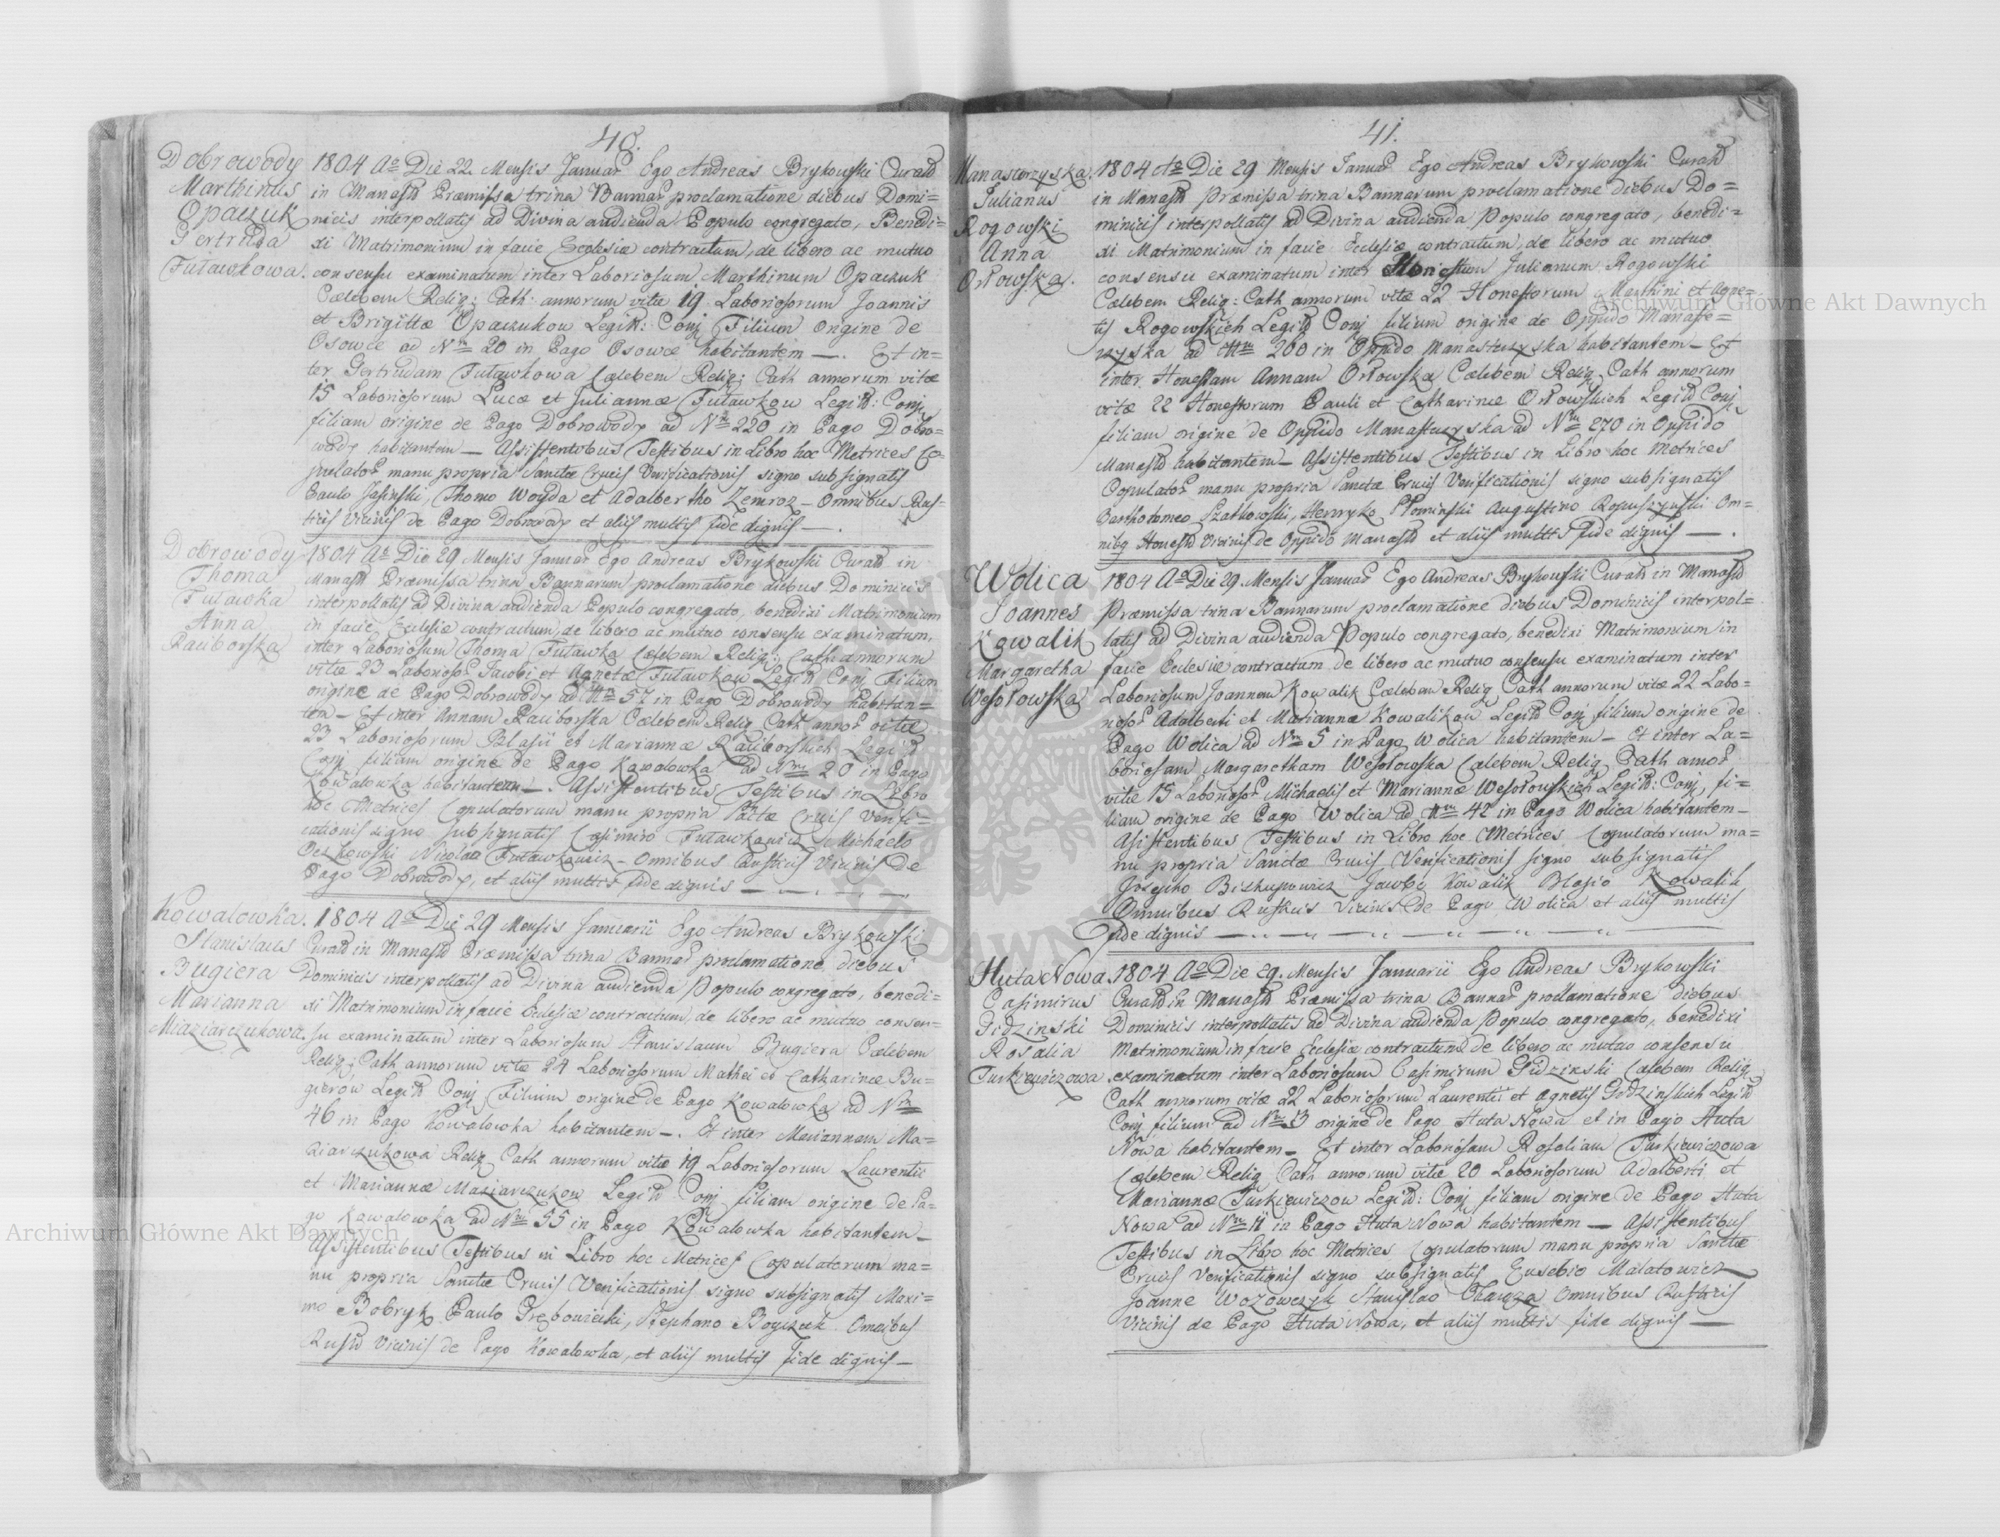 40.
Dobrowody
Marthinus
Opaczuk
Gertruda
Futawkowa.
1804 Ao Die 22 Mensis Januar Ego Andreas Brykowski Curat
in Manast Præmissa trina Bannar proclamatione diebus Domi=
nicis interpollatis ad Divina audienda Populo congregato, Benedi=
xi Matrimonium in facie Ecclesiæ contractum, de libero ac mutuo
consensu examinatum inter Laboriosum Marthinum Opaczuk
Cælebem Relig: Cath: annorum vitæ 19 Laboriosorum Joannis
et Brigittæ Opaczukow Legitt: Conj Filium origine de
Osowce ad Nrm 20 in Pago Osowce habitantem —. Et in=
ter Gertrudam Futawkowa Cælebem Relig: Cath annorum vitæ
15 Laboriosorum Lucæ et Juliannæ Futawkow Legitt: Conj
filiam origine de Pago Dobrowody ad Nrm 220 in Pago Dobro=
wody habitantem — Assistentibus Testibus in Libro hoc Metrices Co=
pulator manu propria Sanctæ Crucis Verificationis signo subsignatis
Paulo Jasinski, Thoma Woyda et Adalbertho Zemroz — Omnibus Rus=
ticis Vicinis de Pago Dobrowody et aliis multis fide dignis —.
Dobrowody
Thoma
Futawka
Anna
Raciborska
1804 Ao Die 29 Mensis Januar Ego Andreas Brykowski Curat in
Manast Præmissa trina Bannarum proclamatione diebus Dominicis
interpollatis ad Divina audienda Populo congregato, benedixi Matrimonium
in facie Ecclesiæ contractum, de libero ac mutuo consensu examinatum,
inter Laboriosum Thoma Futawka Cælebem Relig: Cath annorum
vitæ 23 Laborios Jacobi et Agnetæ Futawkow Legitt Conj Filium
origine de Pago Dobrowody ad Nrm 57 in Pago Dobrowody habitan=
tem — Et inter Annam Raciborska Cælebem Relig Cath annor vitæ
23 Laboriosorum Blasii et Mariannæ Raciborskich Legitt
Conj filiam origine de Pago Kowalowka ad Nrm 20 in Pago
Kowalowka habitantem —. Assistentibus Testibus in Libro
hoc Metrices Copulatorum manu propria Sactæ Crucis Verifi=
cationis signo subsignatis Casimiro Futawkowicz Michaelo
Oczkowski Nicolao Futawkowicz — Omnibus Rusticis Vicinis de
Pago Dobrowody, et aliis multis fide dignis —
Kowalowka.
Stanislaus
Bugiera
Marianna
Maziarczukowa.
1804 Ao Die 29 Mensis Januarii Ego Andreas Brykowski
Curat in Manast Præmissa trina Bannar proclamatione diebus
Dominicis interpollatis ad Divina audienda Populo congregato, benedi=
xi Matrimonium in facie Ecclesiæ contractum, de libero ac mutuo consen=
su examinatum inter Laboriosum Stanislaum Bugiera Cælebem
Relig: Cath annorum vitæ 24 Laboriosorum Mathei et Catharinæ Bu=
gierow Legitt Conj Filium origine de Pago Kowalowka ad Nrm
46 in Pago Kowalowka habitantem —. Et inter Mariannam Ma=
ziarczukowa Relig Cath annorum vitæ 19 Laboriosorum Laurentii
et Mariannæ Maziarczukow Legitt Conj filiam origine de Pa=
go Kowalowka ad Nrm 55 in Pago Kowalowka habitantem —
Assistentibus Testibus in Libro hoc Metrices Copulatorum ma=
nu propria Sanctæ Crucis Verificationis signo subsignatis Maxi=
mo Bobryk, Paulo Grębowiecki, Stephano Boyczuk Omnibus
Rust Vicinis de Pago Kowalowka, et aliis multis fide dignis —
41.
Manasterzyska.
Julianus
Rogowski
Anna
Orłowska.
1804 Ao Die 29 Mensis Januar Ego Andreas Brykowski Curat
in Manast Præmissa trina Bannarum proclamatione diebus Do=
minicis interpollatis ad Divina audienda Populo congregato, benedi=
xi Matrimonium in facie Ecclesiæ contractum, de libero ac mutuo
consensu examinatum inter Honestum Julianum Rogowski
Cælebem Relig: Cath annorum vitæ 22 Honestorum Marthini et Agne=
tis Rogowskich Legitt Conj filium origine de Oppido Manaste=
rzyska ad Nrm 200 in Oppido Manasterzyska habitantem — Et
inter Honestam Annam Orłowska Cælebem Relig Cath annorum
vitæ 22 Honestorum Pauli et Catharinæ Orłowskich Legitt Conj
filiam origine de Oppido Manasterzyska ad Nrm 270 in Oppido
Manast habitantem — Assistentibus Testibus in Libro hoc Metrices
Copulator manu propria Sanctæ Crucis Verificationis signo subsignatis
Bartholomeo Szatkowski, Henryko Słominski Augustino Ropuszynski Om=
nibq Honest Vicinis de Oppido Manast et aliis multis fide dignis —.
Wolica
Joannes
Kowalik
Margaretha
Wesołowska
1804 Ao Die 29 Mensis Januar Ego Andreas Brykowski Curat in Manast
Præmissa trina Bannarum proclamatione diebus Dominicis interpol=
latis ad Divina audienda Populo congregato, benedixi Matrimonium in
facie Ecclesiæ contractum de libero ac mutuo consensu examinatum inter
Laboriosum Joannem Kowalik Cælebem Relig Cath annorum vitæ 22 Labo=
rios Adalberti et Mariannæ Kowalikow Legitt Conj filium origine de
Pago Wolica ad Nrm 5 in Pago Wolica habitantem — Et inter La=
boriosam Margaretham Wesołowska Cælebem Relig Cath annor
vitæ 15 Laborios Michaelis et Mariannæ Wesołowskich Legitt: Conj, fi=
liam origine de Pago Wolica ad Nrm 42 in Pago Wolica habitantem —
Assistentibus Testibus in Libro hoc Metrices Copulatorum ma=
nu propria Sanctæ Crucis Verificationis signo subsignatis
Josepho Biskupowicz Jacobo Kowalik Blasio Kowalik
Omnibus Rusticis Vicinis de Pago Wolica et aliis multis
fide dignis —
Huta Nowa
Casimirus
Gidzinski
Rosalia
Turkiewiczowa.
1804 Ao Die 29. Mensis Januarii Ego Andreas Brykowski
Curat in Manast Præmissa trina Bannar proclamatione diebus
Dominicis interpollatis ad Divina audienda Populo congregato, benedixi
Matrimonium in facie Ecclesiæ contractum de libero ac mutuo consensu
examinatum inter Laboriosum Casimirum Gidzinski Cælebem Relig
Cath annorum vitæ 22 Laboriosorum Laurentii et Agnetis Gidzinskich Legitt
Conj filium ad Nrm 13 origine de Pago Huta Nowa et in Pago Huta
Nowa habitantem — Et inter Laboriosam Rosaliam Turkiewiczowa
Cælebem Relig Cath annorum vitæ 20 Laboriosorum Adalberti et
Mariannæ Turkiewiczow Legitt: Conj filiam origine de Pago Huta
Nowa ad Nrm 11 in Pago Huta Nowa habitantem — Assistentibus
Testibus in Libro hoc Metrices Copulatorum manu propria Sanctæ
Crucis Verificationis signo subsignatis Eusebio Malatowicz
Joanne Wozowczyk Stanislao Chanza Omnibus Rusticis
Vicinis de Pago Huta Nowa, et aliis multis fide dignis —
Archiwum Główne Akt Dawnych
Archiwum Główne Akt Dawnych